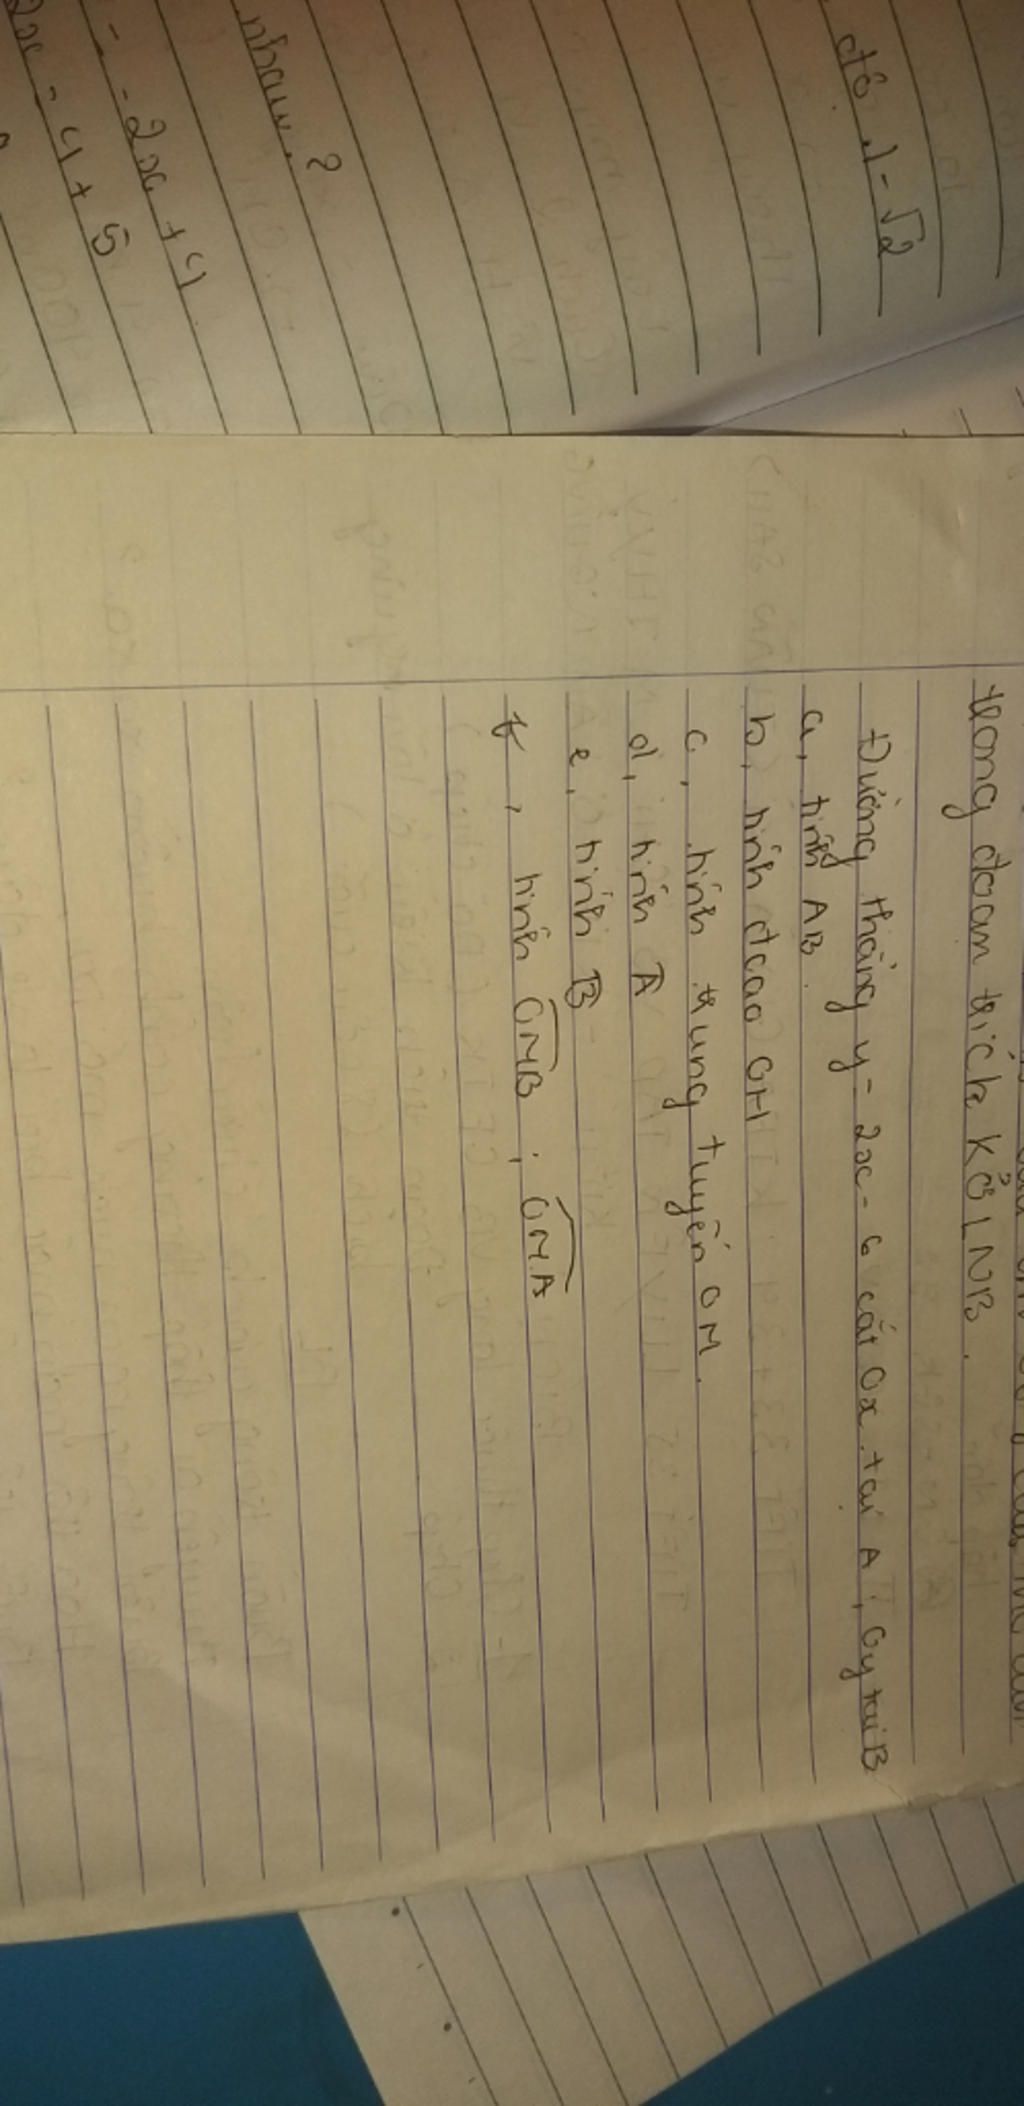 độ 1-√2
nhau?
= -2x +4
2x - 4 + 5
trong đoạn trích KỞ LNB.
Đường thẳng y = 2x - 6 cắt Ox tại A, Oy tại B
a, tính AB
b, tính đcao OH
c, tính trung tuyến OM
d, tính Â
e, tính B̂
f, tính OMB ; OMA